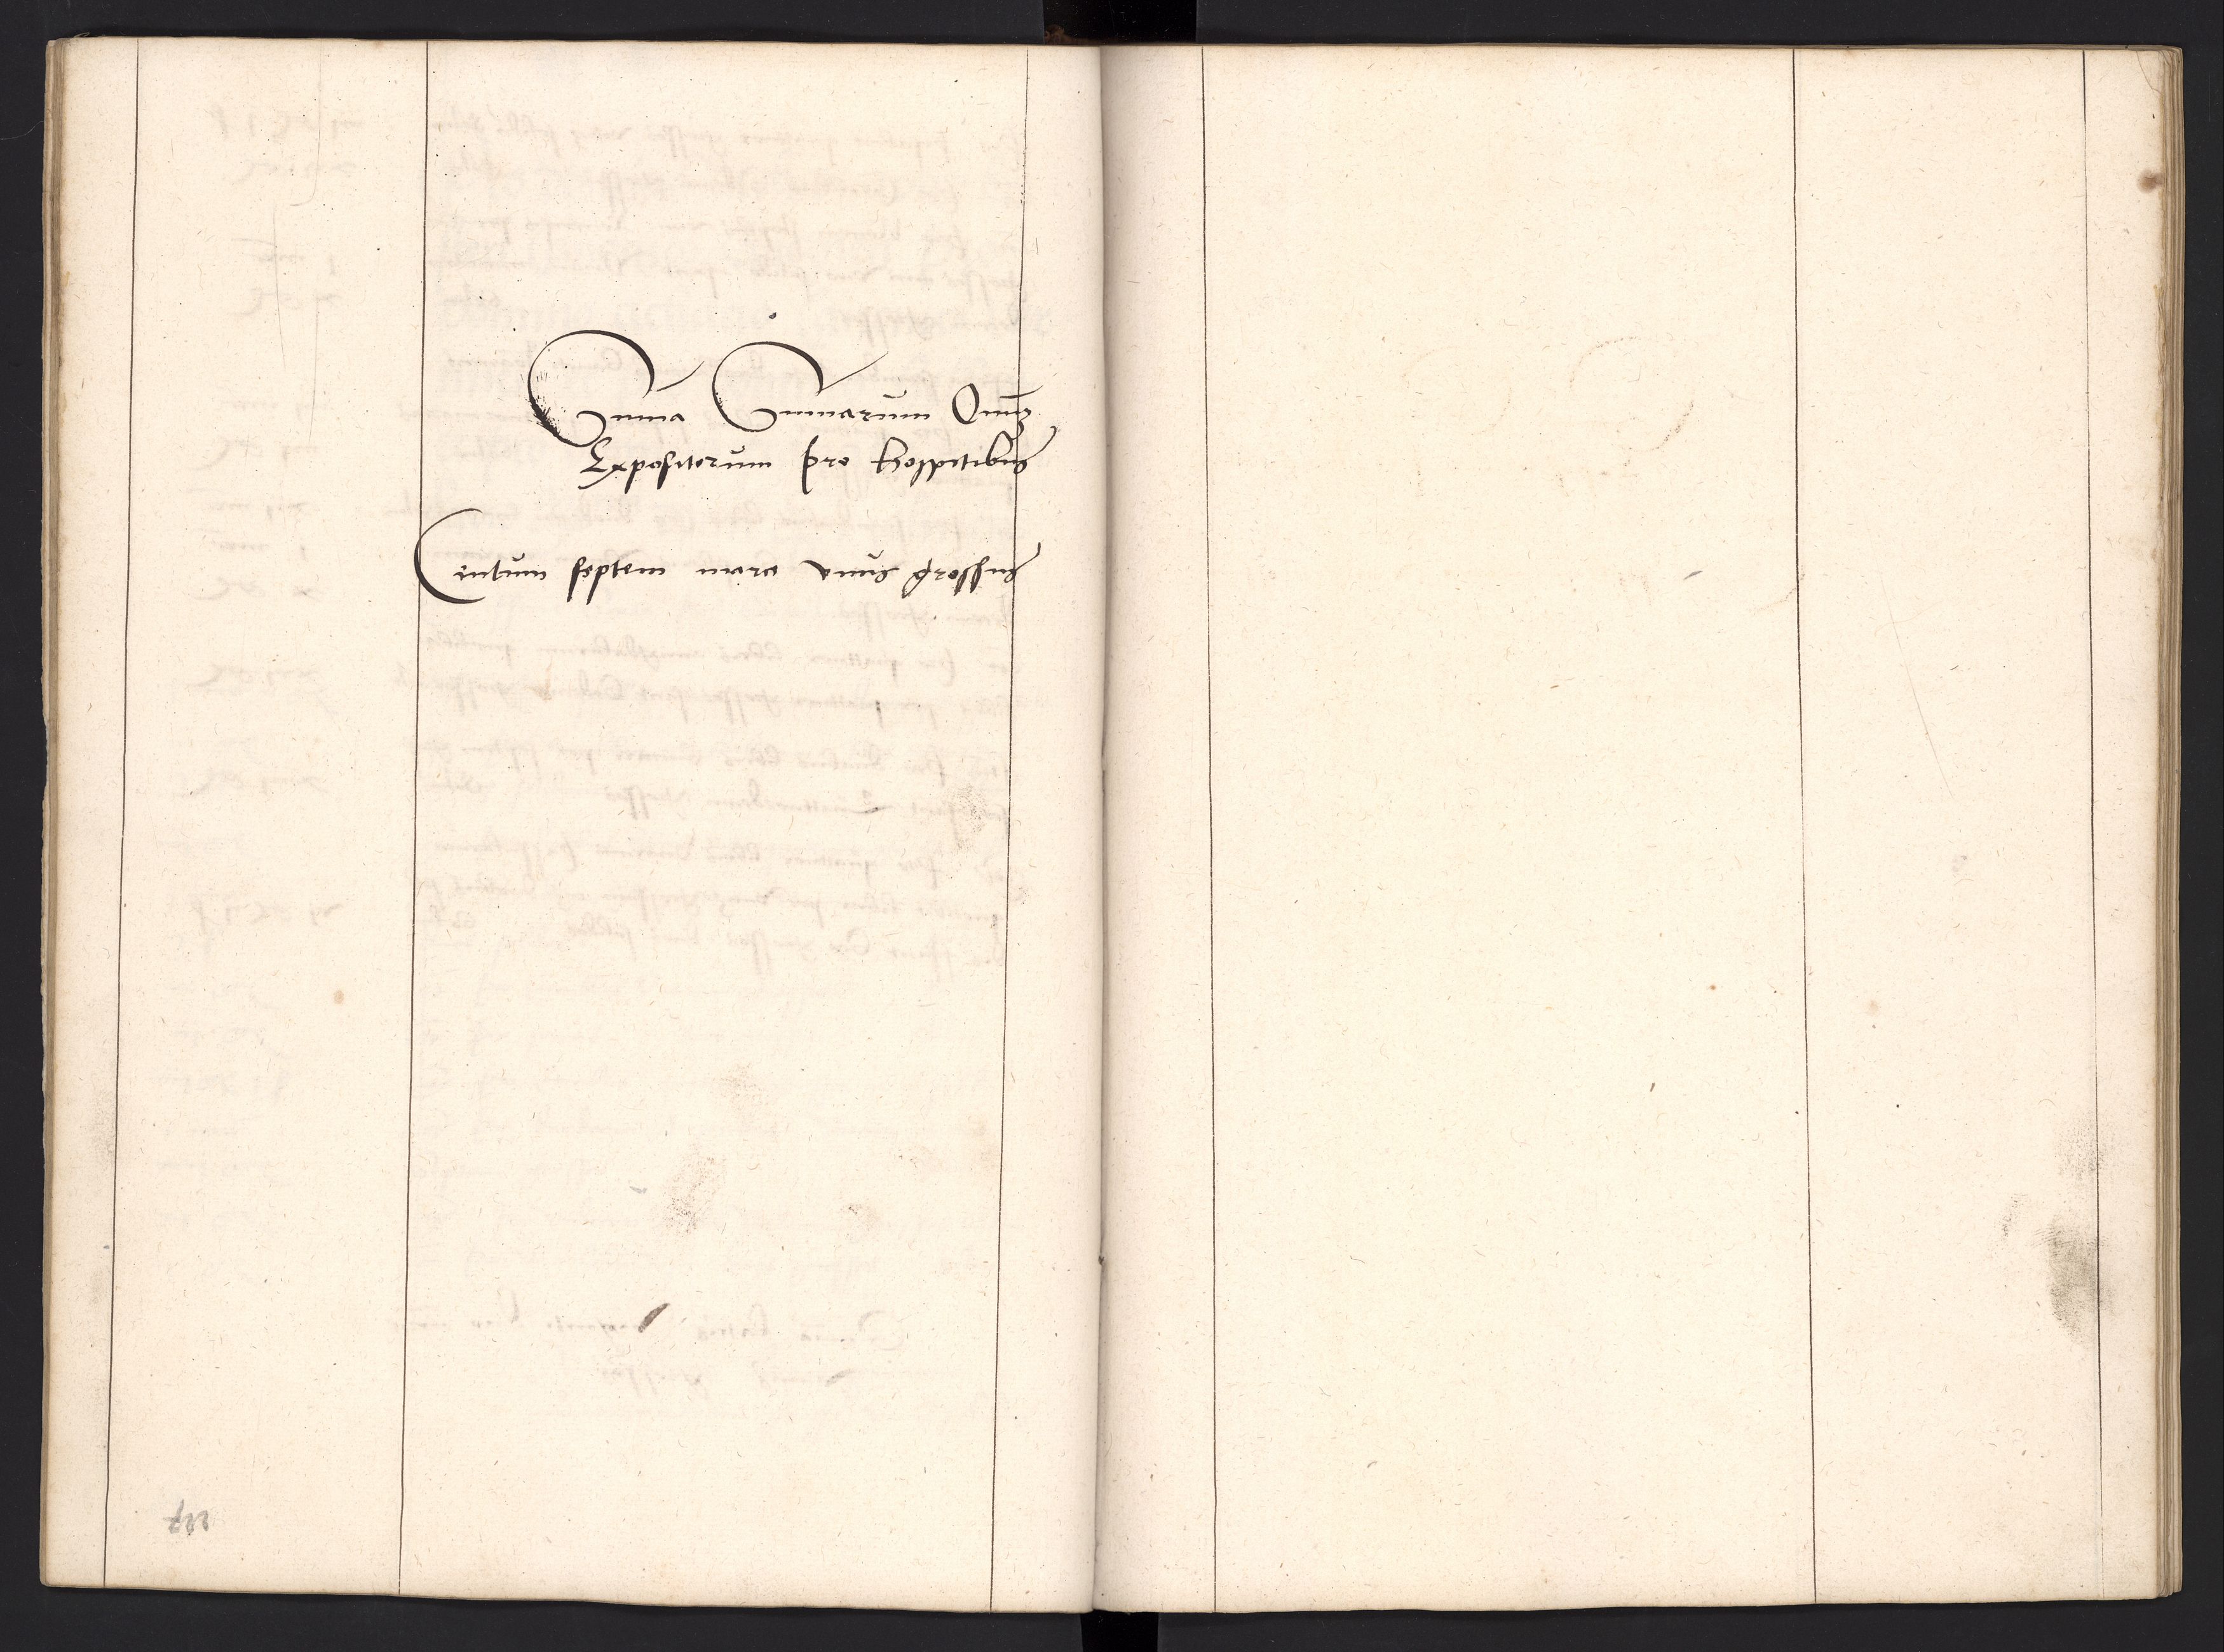 Suma Sumarum Omniũ
Expositorum pro hospitibus
Centum septem marc unus grossus